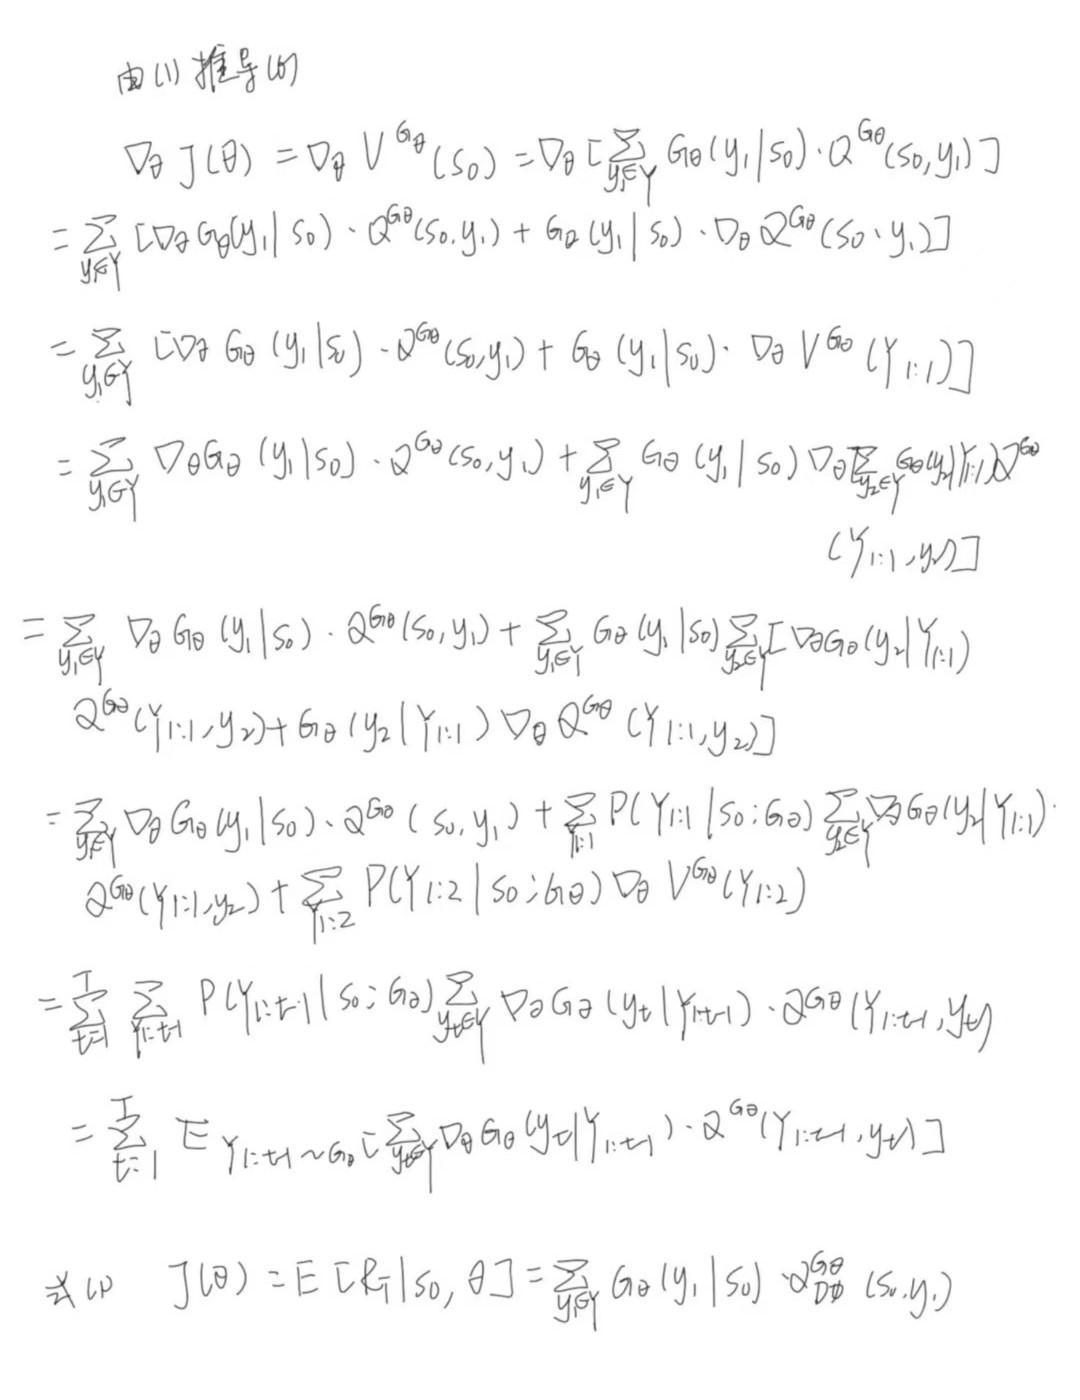 由(1)推导(6)
∇θ J(θ) = ∇θ V^{Gθ}(s0) = ∇θ [∑_{y1∈Y} Gθ(y1|s0)·Q^{Gθ}(s0,y1)]
= ∑_{y1∈Y} [∇θ Gθ(y1|s0)·Q^{Gθ}(s0,y1) + Gθ(y1|s0)·∇θ Q^{Gθ}(s0,y1)]
= ∑_{y1∈Y} [∇θ Gθ(y1|s0)·Q^{Gθ}(s0,y1) + Gθ(y1|s0)·∇θ V^{Gθ}(Y1:1)]
= ∑_{y1∈Y} ∇θGθ(y1|s0)·Q^{Gθ}(s0,y1) + ∑_{y1∈Y} Gθ(y1|s0) ∇θ[∑_{y2∈Y} Gθ(y2|Y1:1)Q^{Gθ}
(Y1:1,y2)]
= ∑_{y1∈Y} ∇θ Gθ(y1|s0)·Q^{Gθ}(s0,y1) + ∑_{y1∈Y} Gθ(y1|s0) ∑_{y2∈Y}[∇θGθ(y2|Y1:1)
Q^{Gθ}(Y1:1,y2) + Gθ(y2|Y1:1) ∇θ Q^{Gθ}(Y1:1,y2)]
= ∑_{y1∈Y} ∇θ Gθ(y1|s0)·Q^{Gθ}(s0,y1) + ∑_{Y1:1} P(Y1:1|s0;Gθ) ∑_{y2∈Y} ∇θGθ(y2|Y1:1)·
Q^{Gθ}(Y1:1,y2) + ∑_{Y1:2} P(Y1:2|s0;Gθ) ∇θ V^{Gθ}(Y1:2)
= ∑_{t=1}^{T} ∑_{Y1:t-1} P(Y1:t-1|s0;Gθ) ∑_{yt∈Y} ∇θGθ(yt|Y1:t-1)·Q^{Gθ}(Y1:t-1,yt)
= ∑_{t=1}^{T} E_{Y1:t-1~Gθ} [∑_{yt∈Y} ∇θGθ(yt|Y1:t-1)·Q^{Gθ}(Y1:t-1,yt)]
式(1) J(θ) = E[RT|s0,θ] = ∑_{y1∈Y} Gθ(y1|s0)·Q^{Gθ}_{Dφ}(s0,y1)